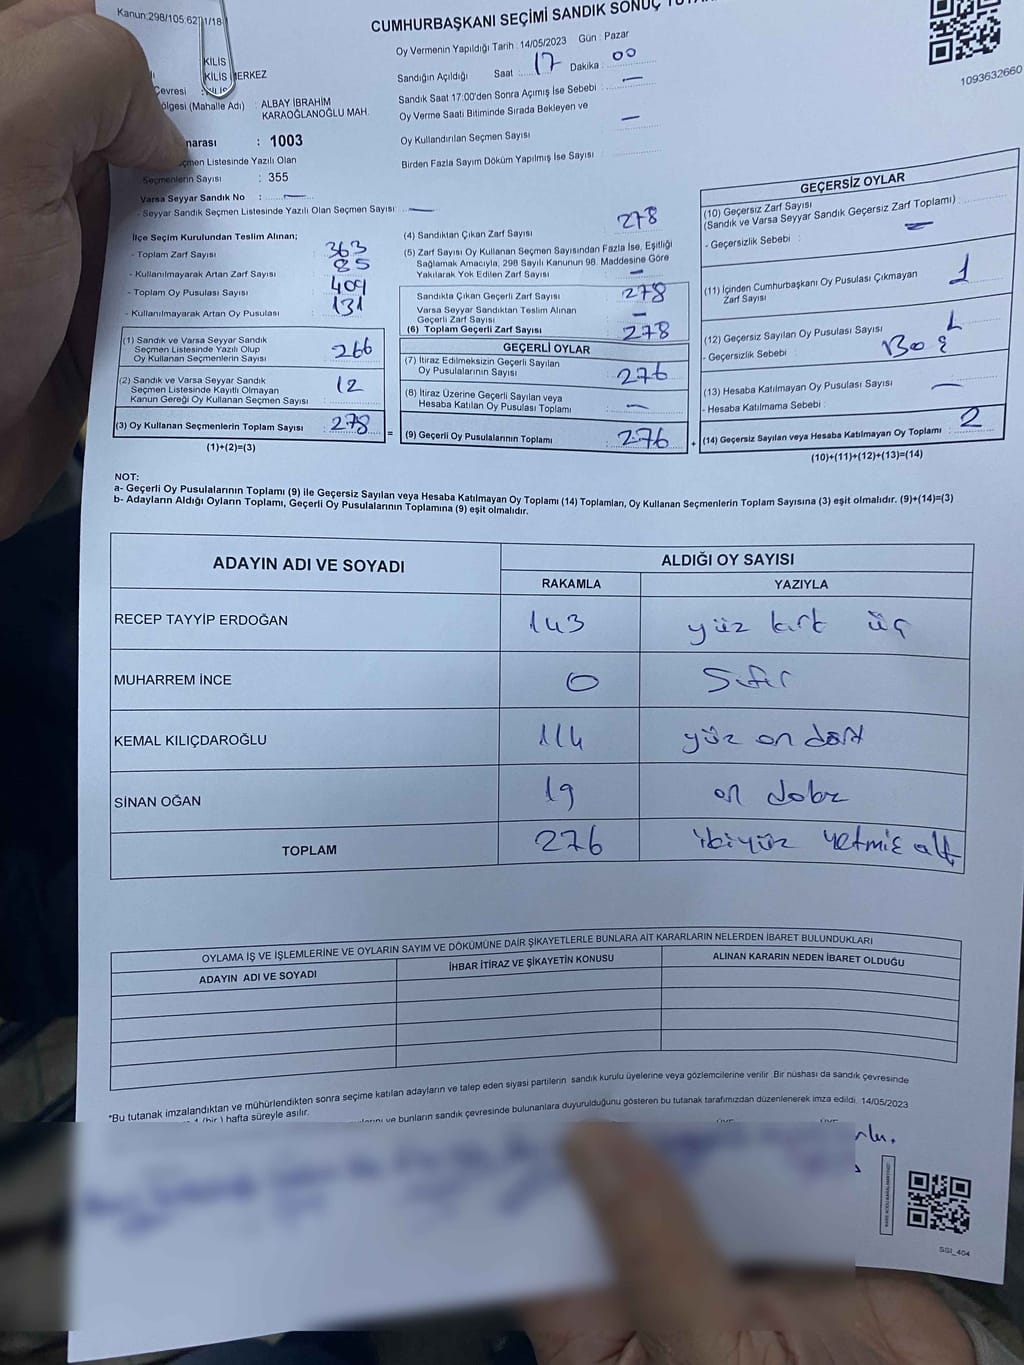 Kanun:298/105.62
1/18
CUMHURBAŞKANI SEÇİMİ SANDIK SONUÇ
Oy Vermenin Yapıldığı Tarih : 14/05/2023 Gün : Pazar
Sandığın Açıldığı Saat : 17 Dakika : 00
Sandık Saat 17:00'den Sonra Açımış İse Sebebi : —
Oy Verme Saati Bitiminde Sırada Bekleyen ve
Oy Kullandırılan Seçmen Sayısı : —
Birden Fazla Sayım Döküm Yapılmış İse Sayısı :
1093632660
KİLİS
KİLİS MERKEZ
Çevresi :
ölgesi (Mahalle Adı) : ALBAY İBRAHİM
KARAOĞLANOĞLU MAH.
marası : 1003
çmen Listesinde Yazılı Olan
Seçmenlerin Sayısı : 355
Varsa Seyyar Sandık No : —
- Seyyar Sandık Seçmen Listesinde Yazılı Olan Seçmen Sayısı : —
İlçe Seçim Kurulundan Teslim Alınan;
- Toplam Zarf Sayısı : 363
- Kullanılmayarak Artan Zarf Sayısı : 85
- Toplam Oy Pusulası Sayısı : 409
- Kullanılmayarak Artan Oy Pusulası : 131
(1) Sandık ve Varsa Seyyar Sandık
Seçmen Listesinde Yazılı Olup
Oy Kullanan Seçmenlerin Sayısı : 266
(2) Sandık ve Varsa Seyyar Sandık
Seçmen Listesinde Kayıtlı Olmayan
Kanun Gereği Oy Kullanan Seçmen Sayısı : 12
(3) Oy Kullanan Seçmenlerin Toplam Sayısı : 278
(1)+(2)=(3)
=
(4) Sandıktan Çıkan Zarf Sayısı : 278
(5) Zarf Sayısı Oy Kullanan Seçmen Sayısından Fazla İse, Eşitliği
Sağlamak Amacıyla, 298 Sayılı Kanunun 98. Maddesine Göre
Yakılarak Yok Edilen Zarf Sayısı : —
Sandıkta Çıkan Geçerli Zarf Sayısı : 278
Varsa Seyyar Sandıktan Teslim Alınan
Geçerli Zarf Sayısı : —
(6) Toplam Geçerli Zarf Sayısı : 278
GEÇERLİ OYLAR
(7) İtiraz Edilmeksizin Geçerli Sayılan
Oy Pusulalarının Sayısı : 276
(8) İtiraz Üzerine Geçerli Sayılan veya
Hesaba Katılan Oy Pusulası Toplamı : —
(9) Geçerli Oy Pusulalarının Toplamı : 276
+
GEÇERSİZ OYLAR
(10) Geçersiz Zarf Sayısı
(Sandık ve Varsa Seyyar Sandık Geçersiz Zarf Toplamı) : —
- Geçersizlik Sebebi :
(11) İçinden Cumhurbaşkanı Oy Pusulası Çıkmayan
Zarf Sayısı : 1
(12) Geçersiz Sayılan Oy Pusulası Sayısı : 1
- Geçersizlik Sebebi : Boş
(13) Hesaba Katılmayan Oy Pusulası Sayısı : —
- Hesaba Katılmama Sebebi :
(14) Geçersiz Sayılan veya Hesaba Katılmayan Oy Toplamı : 2
(10)+(11)+(12)+(13)=(14)
NOT:
a- Geçerli Oy Pusulalarının Toplamı (9) ile Geçersiz Sayılan veya Hesaba Katılmayan Oy Toplamı (14) Toplamları, Oy Kullanan Seçmenlerin Toplam Sayısına (3) eşit olmalıdır. (9)+(14)=(3)
b- Adayların Aldığı Oyların Toplamı, Geçerli Oy Pusulalarının Toplamına (9) eşit olmalıdır.
ADAYIN ADI VE SOYADI
ALDIĞI OY SAYISI
RAKAMLA YAZIYLA
RECEP TAYYİP ERDOĞAN 143 yüz kırk üç
MUHARREM İNCE 0 Sıfır
KEMAL KILIÇDAROĞLU 114 yüz on dört
SİNAN OĞAN 19 on dokuz
TOPLAM 276 ikiyüz yetmiş altı
OYLAMA İŞ VE İŞLEMLERİNE VE OYLARIN SAYIM VE DÖKÜMÜNE DAİR ŞİKAYETLERLE BUNLARA AİT KARARLARIN NELERDEN İBARET BULUNDUKLARI
ADAYIN ADI VE SOYADI İHBAR İTİRAZ VE ŞİKAYETİN KONUSU ALINAN KARARIN NEDEN İBARET OLDUĞU
*Bu tutanak imzalandıktan ve mühürlendikten sonra seçime katılan adayların ve talep eden siyasi partilerin sandık kurulu üyelerine veya gözlemcilerine verilir. Bir nüshası da sandık çevresinde
1 (bir) hafta süreyle asılır.
ve bunların sandık çevresinde bulunanlara duyurulduğunu gösteren bu tutanak tarafımızdan düzenlenerek imza edildi. 14/05/2023
SGI_404